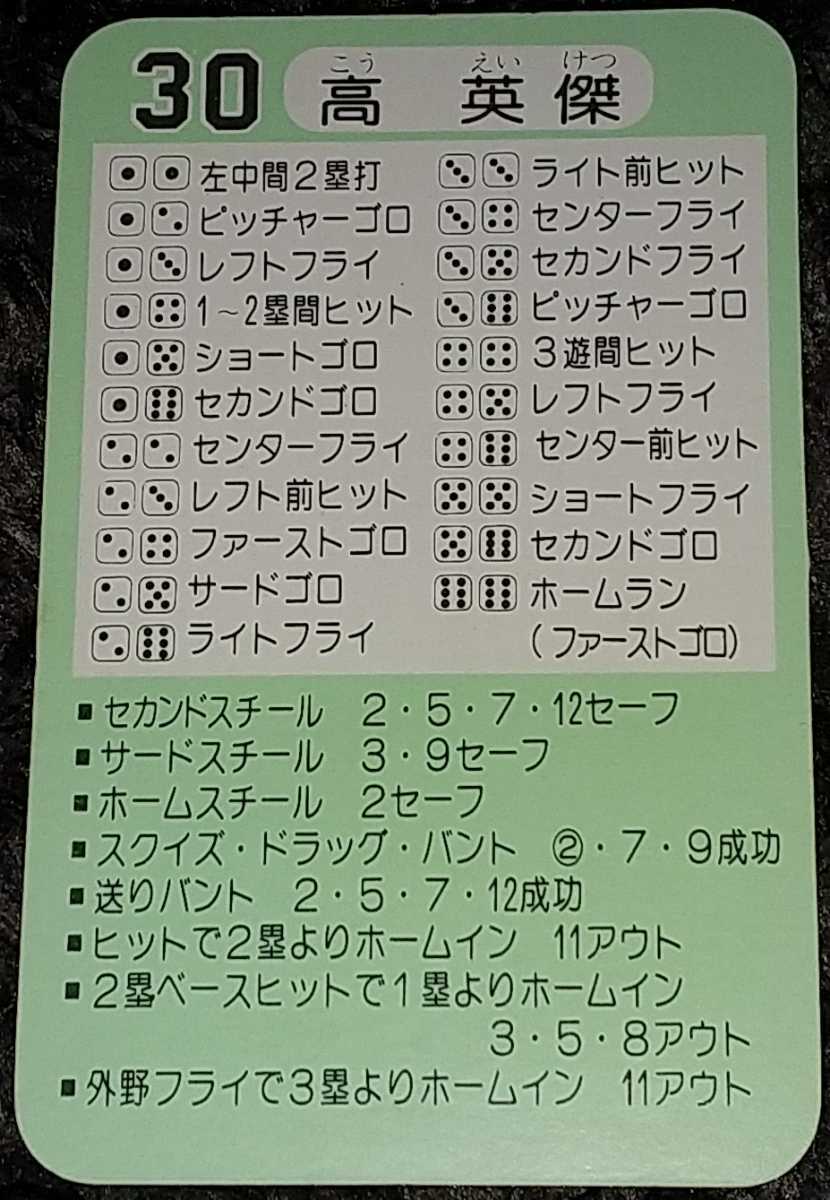 30 高 英 傑
こう えい けつ
左中間2塁打
ピッチャーゴロ
レフトフライ
1～2塁間ヒット
ショートゴロ
セカンドゴロ
センターフライ
レフト前ヒット
ファーストゴロ
サードゴロ
ライトフライ
ライト前ヒット
センターフライ
セカンドフライ
ピッチャーゴロ
3遊間ヒット
レフトフライ
センター前ヒット
ショートフライ
セカンドゴロ
ホームラン
(ファーストゴロ)
■セカンドスチール 2・5・7・12セーフ
■サードスチール 3・9セーフ
■ホームスチール 2セーフ
■スクイズ・ドラッグ・バント ②・7・9成功
■送りバント 2・5・7・12成功
■ヒットで2塁よりホームイン 11アウト
■2塁ベースヒットで1塁よりホームイン
3・5・8アウト
■外野フライで3塁よりホームイン 11アウト